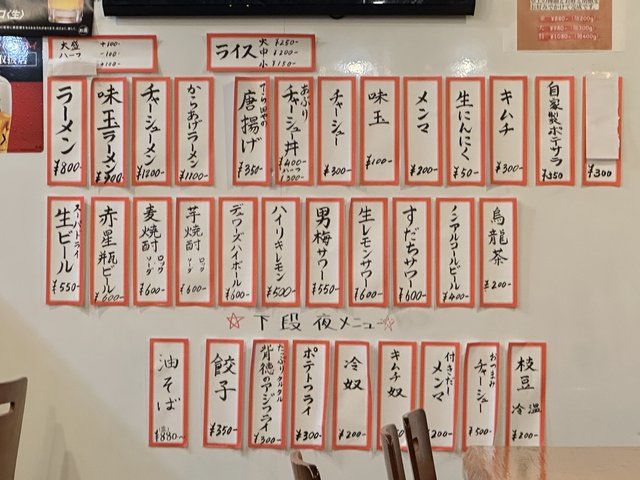 大盛 +100-
ハーフ -100-
+100-
ライス 大 ¥250-
中 ¥200-
小 ¥150-
ラーメン ¥800-
味玉ラーメン ¥900-
チャーシューメン ¥1200-
からあげラーメン ¥1100-
唐揚げ ¥350-
あぶりチャーシュー丼 ¥400- ハーフ ¥300-
チャーシュー ¥300-
味玉 ¥100-
メンマ ¥200-
生にんにく ¥50-
キムチ ¥300-
自家製ポテサラ ¥350
¥300-
スーパードライ 生ビール ¥550-
赤星 瓶ビール ¥600-
麦焼酎 ロック ソーダ ¥600-
芋焼酎 ロック ソーダ ¥600-
デュワーズハイボール ¥600-
ハイリキレモン ¥500-
男梅サワー ¥550-
生レモンサワー ¥600-
すだちサワー ¥600-
ノンアルコールビール ¥400-
烏龍茶 ¥200-
☆下段夜メニュー☆
油そば ¥880~
餃子 ¥350-
たっぷりタルタル 背徳のアジフライ ¥300-
ポテトフライ ¥300-
冷奴 ¥200-
キムチ奴
付きだし メンマ 200-
おつまみ チャーシュー ¥500-
枝豆 冷 温 ¥200-